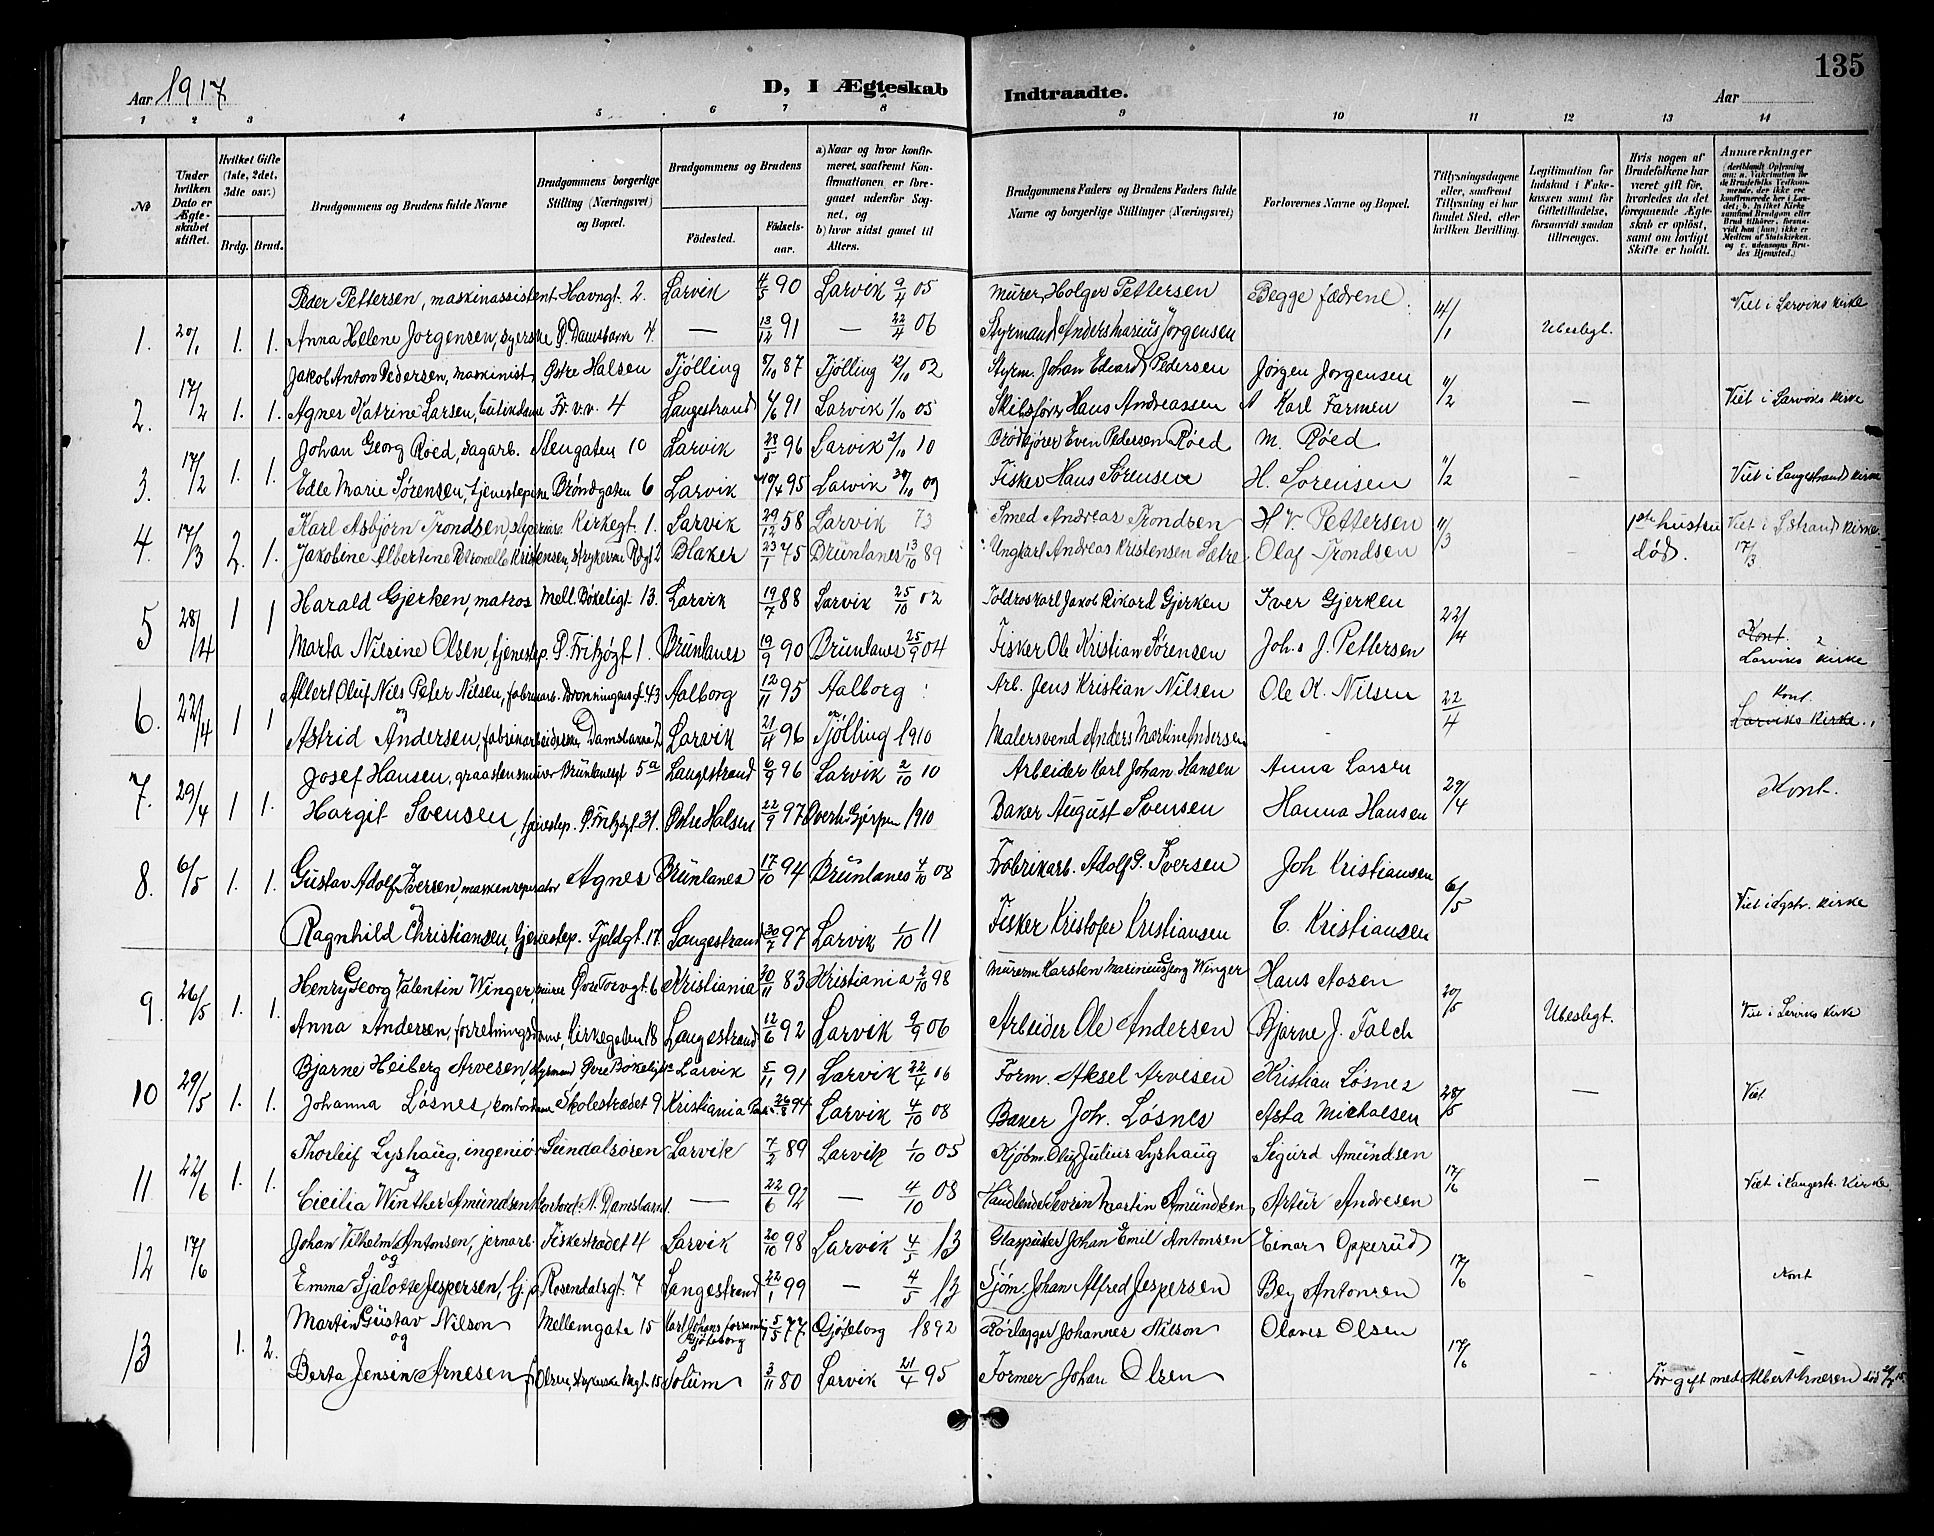 Aar 1917
D, I Ægteskab Indtraadte.
Aar
135
1 2 3 4 5 6 7 8 9 10 11 12 13 14
No
Under hvilken Dato er Ægteskabet stiftet.
Hvilket Gifte (1ste, 2det, 3die osv.)
Brdg. Brud.
Brudgommens og Brudens fulde Navne
Brudgommens borgerlige Stilling (Næringsvei) og Bopæl.
Brudgommens og Brudens
Fødested.
Fødselsaar.
a) Naar og hvor konfirmeret, saafremt Konfirmationen er foregaaet udenfor Sognet, og
b) hvor sidst gaaet til Alters.
Brudgommens Faders og Brudens Faders fulde Navne og borgerlige Stillinger (Næringsvei)
Forlovernes Navne og Bopæl.
Tillysningsdagene eller, saafremt Tillysning ei har fundet Sted, efter hvilken Bevilling.
Legitimation for Indskud i Enkekassen samt for Giftetilladelse, forsaavidt saadan tiltrænges.
Hvis nogen af Brudefolkene har været gift før, hvorledes da det foregaaende Ægteskab er opløst, samt om lovligt Skifte er holdt.
Anmærkninger
Peder Pettersen, maskinassistent Havngt. 2. Larvik 4/5 90 Larvik 9/4 05 Murer Holger Pettersen Begge fædrene Viet i Larviks kirke
1. 20/1 1. 1. Anna Helene Jorgensen, syerske P. Damsbakve 4. — 13/12 91 — 22/4 06 Styrmand Anders Marius Jorgensen 14/1 Ubeslegt.
Jakob Anton Pedersen, maskinist Østre Halsen Tjølling 5/10 87 Tjølling 12/10 02 Styrm. Johan Edvard Pedersen Jørgen Jorgensen
2. 17/2 1. 1. Agnes Katrine Larsen, Fr. v.v. 4 Langestrand 4/6 91 Larvik 1/10 05 Skibsfører Hans Andreassen A Karl Farmen 11/2 — Viet i Larviks kirke
Johan Georg Røed, dagarb. Stengaten 10 Larvik 28/5 96 Larvik 2/10 10 Brødkjører Even Pedersen Røed M. Røed
3. 17/2 1. 1. Edle Marie Sørensen, tjenestepike Brøndgaten 6 Larvik 10/4 95 Larvik 30/10 09 Fisker Hans Sørensen H. Sorensen 11/2 — Viet i Langestrand kirke
Karl Asbjørn Trondsen Kirkegt. 1. Larvik 29/12 58 Larvik 73 Smed Andreas Trondsen H V. Pettersen 1ste hustru Viet i Lstrand kirke.
4. 17/3 2. 1. Jakobine Albertine Petronelle Kristensen, strykerske 2 Blaker 23/1 75 Brunlanes 13/10 89 Ungkarl Andreas Kristensen Sætre Olaf Trondsen 11/3 — død. 17/3
Harald Gjerken, matros Mell. Bøkeligt. 13. Larvik 19/7 88 Larvik 25/10 02 Toldroskarl Jakob Rikard Gjerken Iver Gjerken
5 28/4 1 1 Marta Nilsine Olsen, tjenestep. P. Fritzøgt 1. Brunlanes 19/9 90 Brunlanes 25/9 04 Fisker Ole Kristian Sørensen Johs J. Pettersen 22/4 Kont. Larviks kirke
Albert Oluf Niels Peter Nilsen, fabrikarb. Dronningensgt. 43 Aalborg 12/11 95 Aalborg Arb. Jens Kristian Nilsen Ole K. Nilsen Kont.
6. 22/4 1 1 og Astrid Andersen, fabrikarbeiderske, Damsbakve 2 Larvik 21/4 96 Tjølling 1910 Malersvend Anders Martin Andersen 22/4 Larviks Kirke
Josef Hansen, graastensmurer Brunlanesgt 5a Langestrand 6/9 96 Larvik 2/10 10 Arbeider Karl Johan Hansen Anna Larsen
7. 29/4 1 1. Margit Svensen, tjenestep. P. Fritzøgt 31. Østre Halsen 22/9 97 Gjerpen 1910 Baker August Svensen Hanna Hansen 29/4 Kont.
8. 6/5 1. 1. Gustav Adolf Iversen, maskenreparatør Agnes Brunlanes 17/10 94 Brunlanes 4/10 08 Fabrikarb. Adolf G. Iversen Joh Kristiansen 6/5 Viet i Lgstr. kirke
og Ragnhild Christiansen, tjenestep. Fjeldgt. 17. Langestrand 30/7 97 Larvik 1/10 11 Fisker Kristofer Kristiansen C. Kristiansen
Henry Georg Valentin Winger, murer Øvre Torvgt. 6 Kristiania 20/11 83 Kristiania 2/10 98 Murerm Karsten Marinius Georg Winger Hans Aasen
9. 26/5 1. 1. Anna Andersen, forretningsdame, Kirkegaten 18 Langestrand 12/6 92 Larvik 9/9 06 Arbeider Ole Andersen Bjarne J. Falch 20/5 Ubeslegt. Viet i Larviks kirke
Bjarne Heiberg Arvesen, styrmand Øvre Bøkeligt Larvik 5/11 91 Larvik 22/4 06 Form. Aksel Arvesen Kristian Løsnes
10 29/5 1. 1. Johanna Løsnes, kontordame Skolestrædet 9 Kristiania 26/8 94 Larvik 4/10 08 Baker Joh. Løsnes Asta Michaelsen 28/5 — Viet
Thorleif Lyshaug, ingeniør Sundalsøren Larvik 7/2 89 Larvik 1/10 05 Kjøbm. Oluf Julius Lyshaug Sigurd Amundsen
11 22/6 1. 1. og Cicilia Winther Amundsen kontord. N. Damsbakve 1. — 22/6 92 — 4/10 08 Handlende Severin Martin Amundsen Artur Andresen 17/6 — Viet i Langestr. Kirke
Johan Vilhelm Antonsen, jernarb. Fiskestrædet 4 Larvik 20/10 98 Larvik 4/5 13 Glaspuster Johan Emil Antonsen Einar Opperud
12 17/6 og Emma Sjalotte Jespersen, tj.p. Rosendalsgt. 7 Langestrand 22/1 99 — 4/5 13 Sjøm. Johan Alfred Jespersen Bey Antonsen 17/6 - Kont
Martin Gustav Nilson Mellemgate 15 Karl Johans forsamling Gjøteborg 5/5 77 Gjøteborg 1892 Rørlægger Johannes Nilson Olaves Olsen
13 1. 2. og Berta Jensine Arnesen f. Olsen, strykerske Mgt. 15 Solum 3/11 80 Larvik 21/4 95 Former Johan Olsen 17/6 - Før gift med Albert Arnesen død